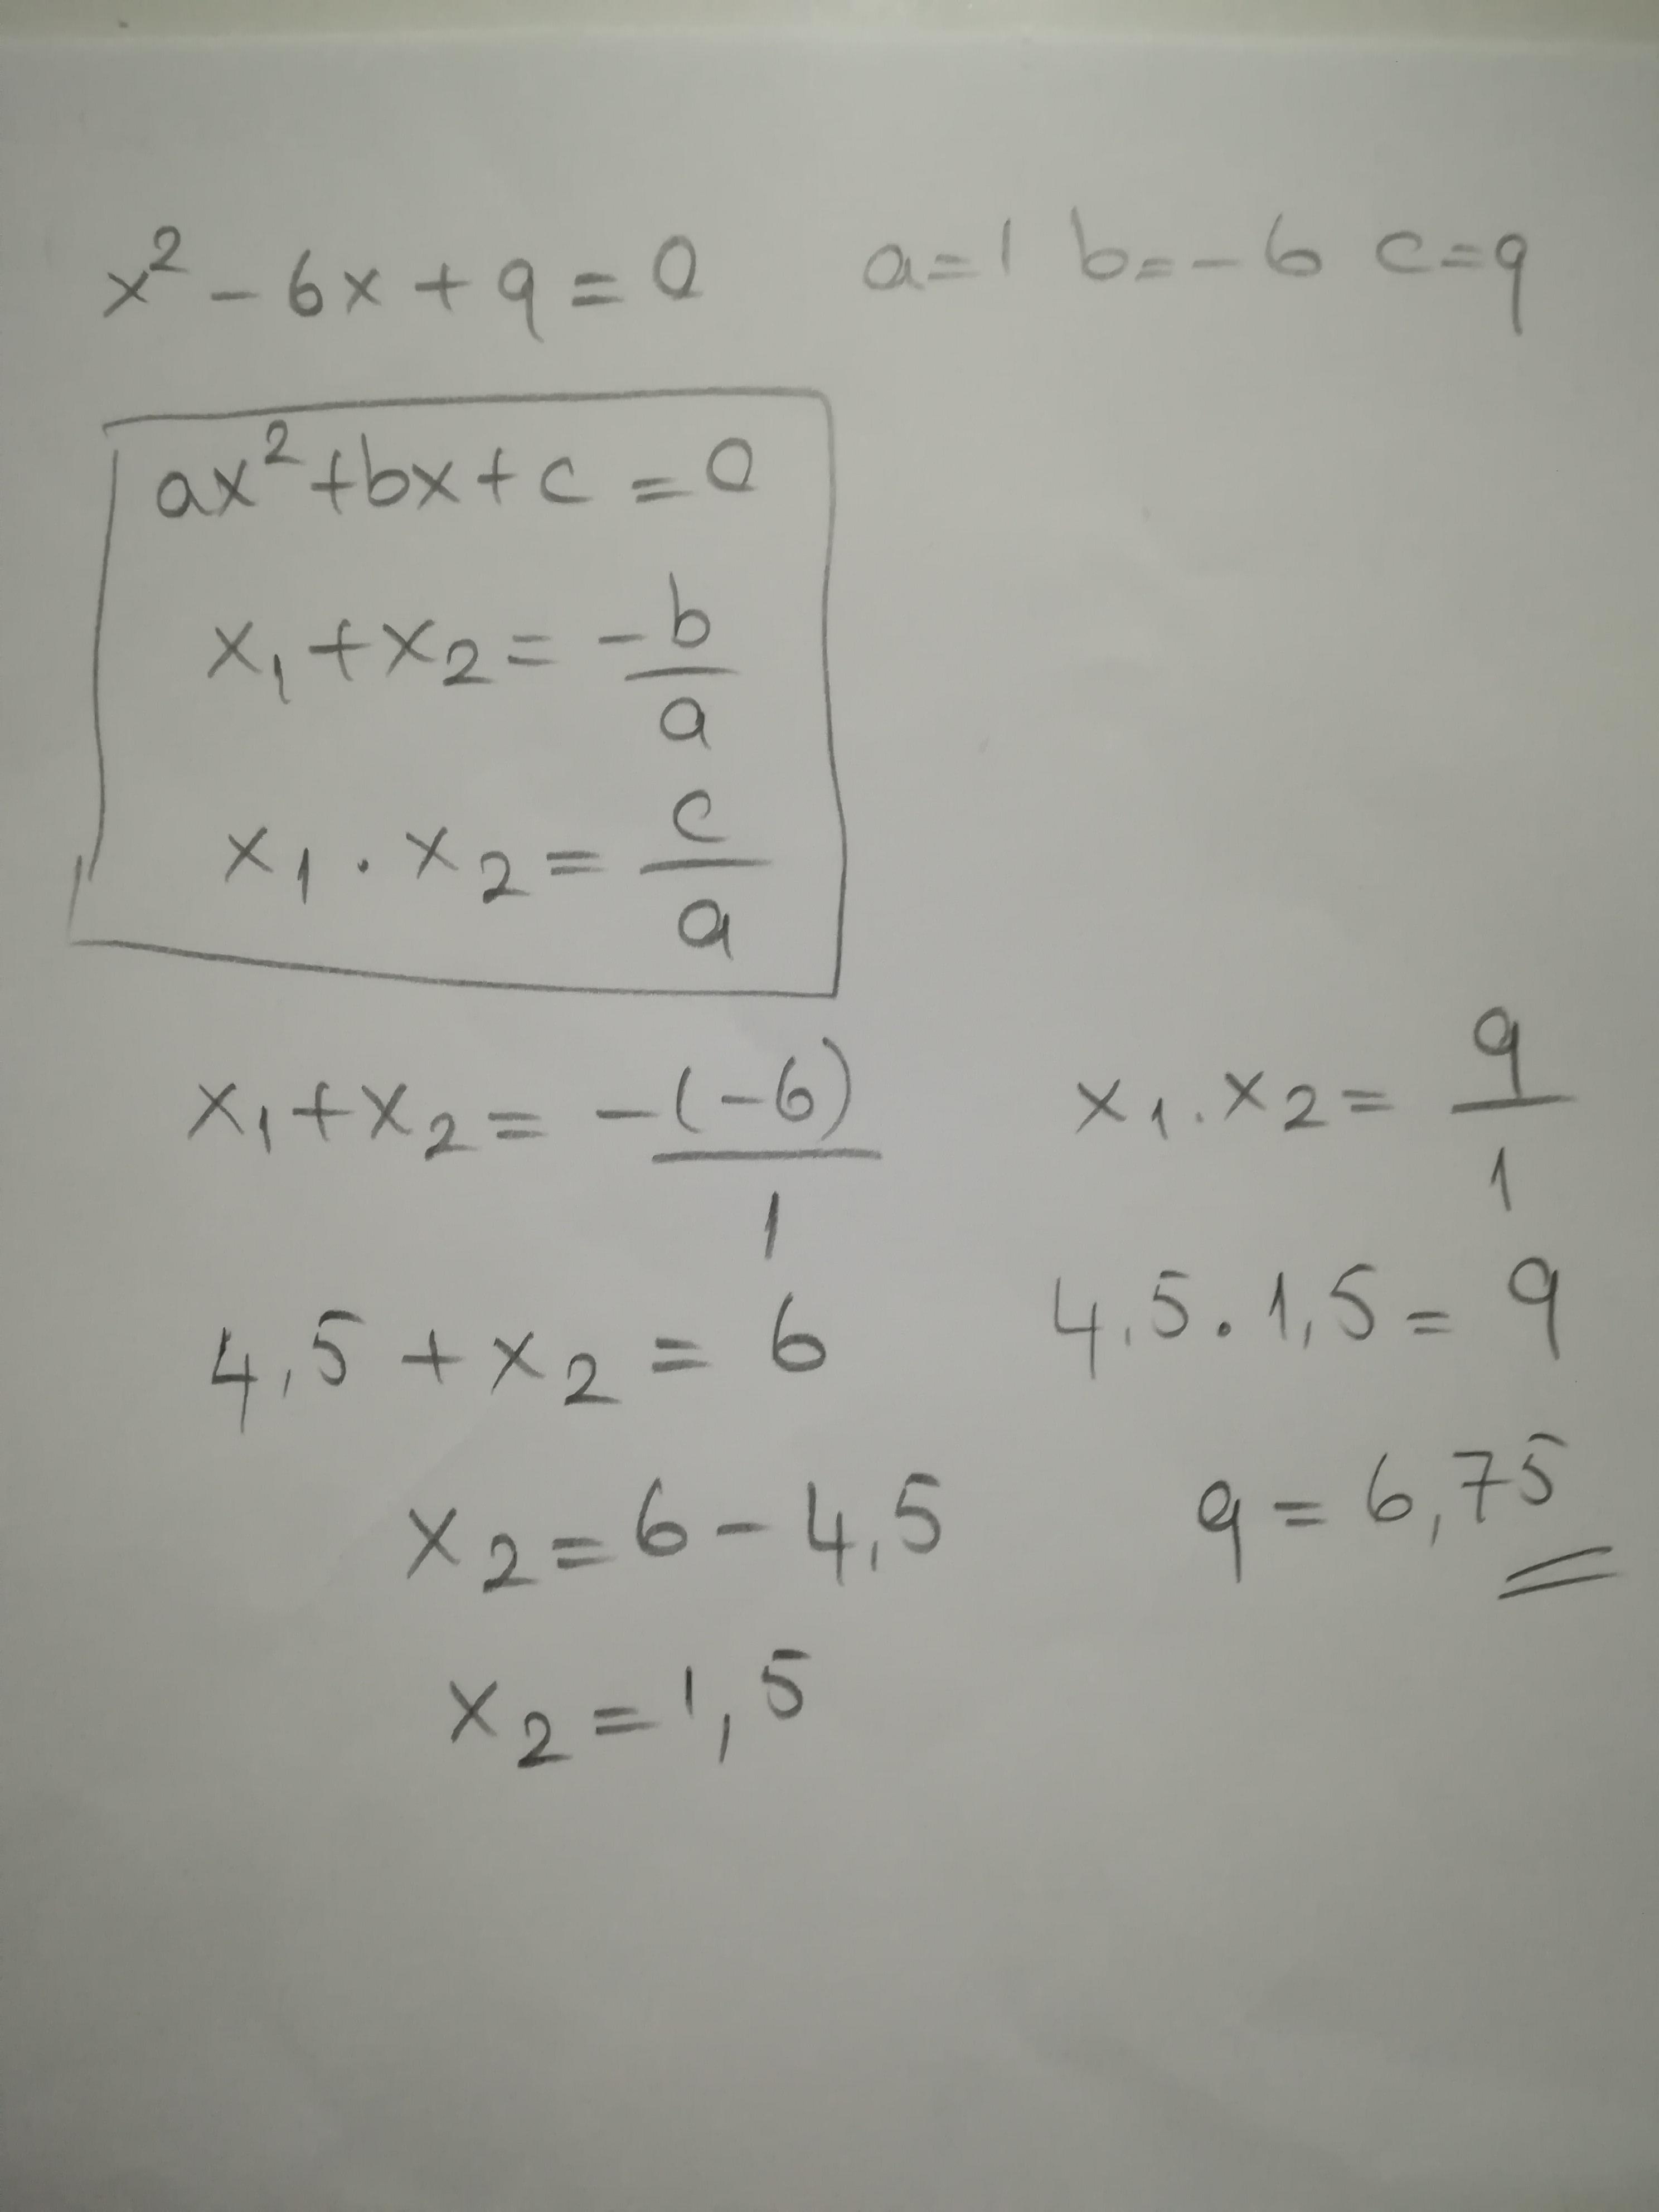 x² - 6x + q = 0 a=1 b=-6 c=q
ax² + bx + c = 0
x₁ + x₂ = -b/a
x₁ . x₂ = c/a
x₁ + x₂ = -(-6)/1
x₁ . x₂ = q/1
4,5 + x₂ = 6
4,5 . 1,5 = q
x₂ = 6 - 4,5
q = 6,75
x₂ = 1,5